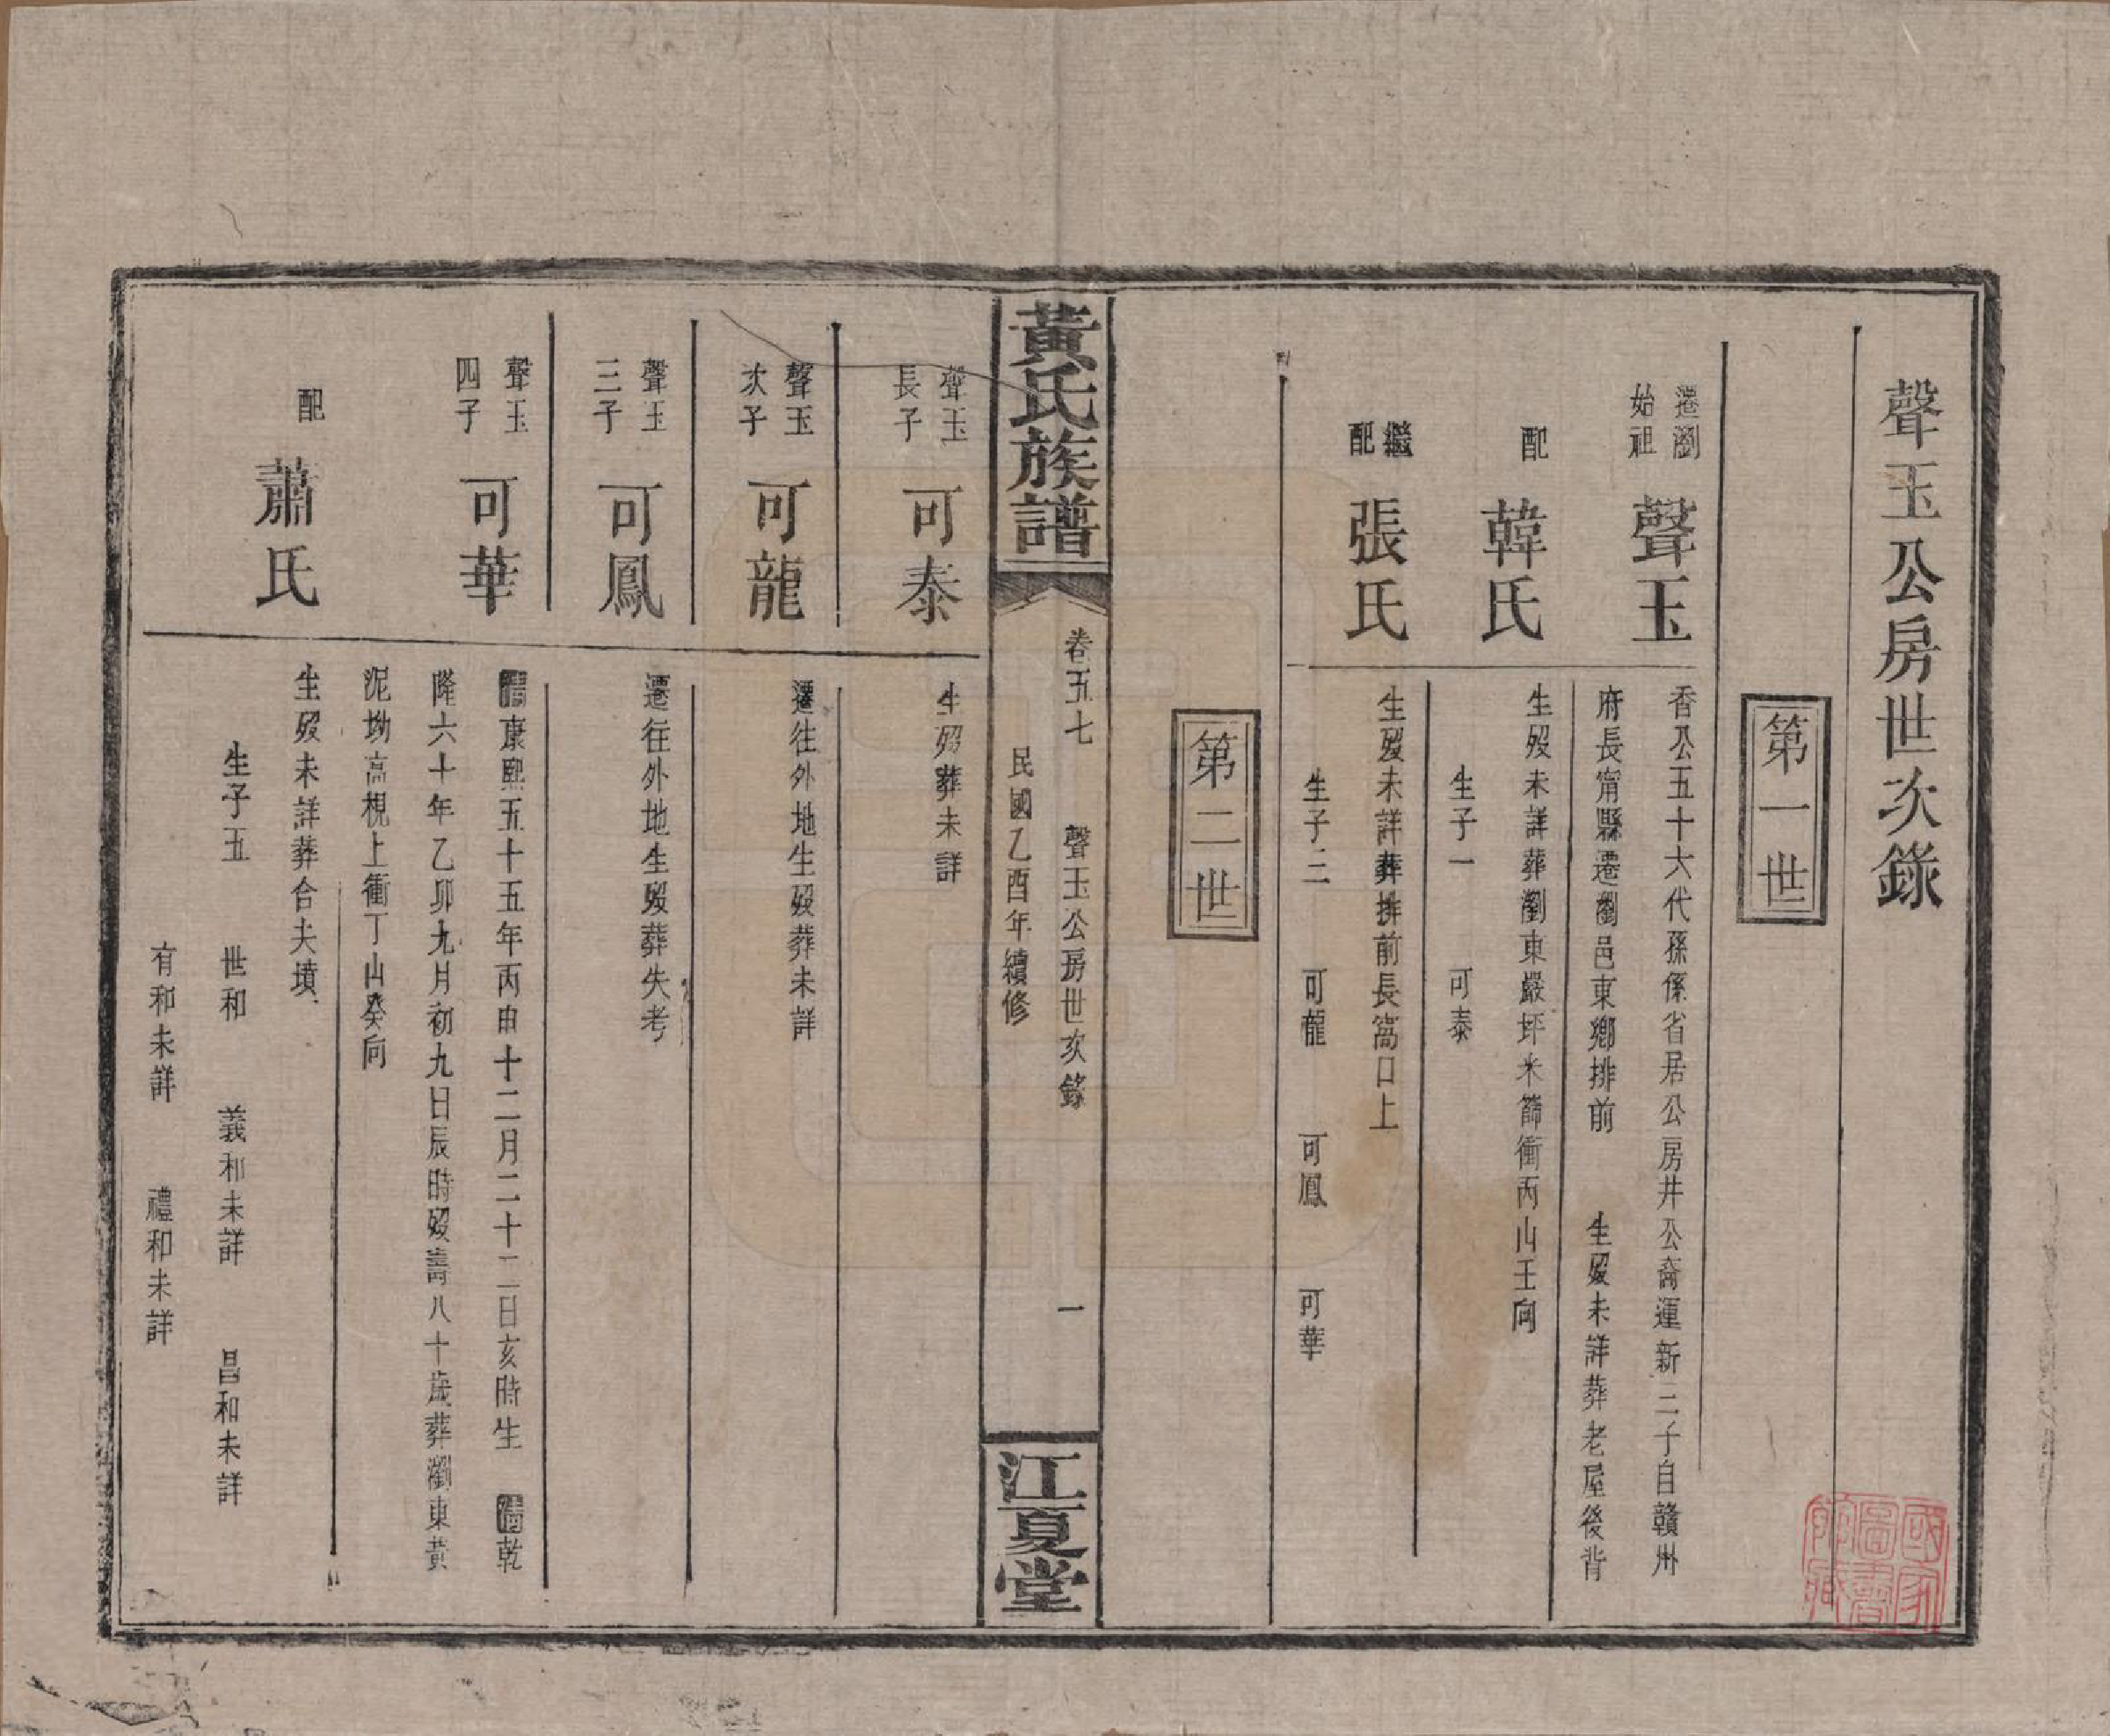 聲玉公房世次錄
第一世
遷瀏
始祖
聲玉
香公五十六代孫係省居公房井公裔運新三子自贛州
府長甯縣遷瀏邑東鄉排前　生歿未詳葬老屋後背
配　韓氏
生歿未詳葬瀏東嚴坪米篩衝丙山壬向
生子一　可泰
繼
配
張氏
生歿未詳葬排前長窩口上
生子三　可龍　可鳳　可華
第二世
黃氏族譜
卷五七　聲玉公房世次錄　一
民國乙酉年續修
江夏堂
聲玉
長子
可泰
生歿葬未詳
聲玉
次子
可龍
遷往外地生歿葬未詳
聲玉
三子
可鳳
遷往外地生歿葬失考
聲玉
四子
可華
清康熙五十五年丙申十二月二十二日亥時生　清乾
隆六十年乙卯九月初九日辰時歿壽八十歲葬瀏東黃
泥坳高梘上衝丁山癸向
配　蕭氏
生歿未詳葬合夫墳
生子五　世和　義和未詳　昌和未詳
有和未詳　禮和未詳
國家
圖書
館藏